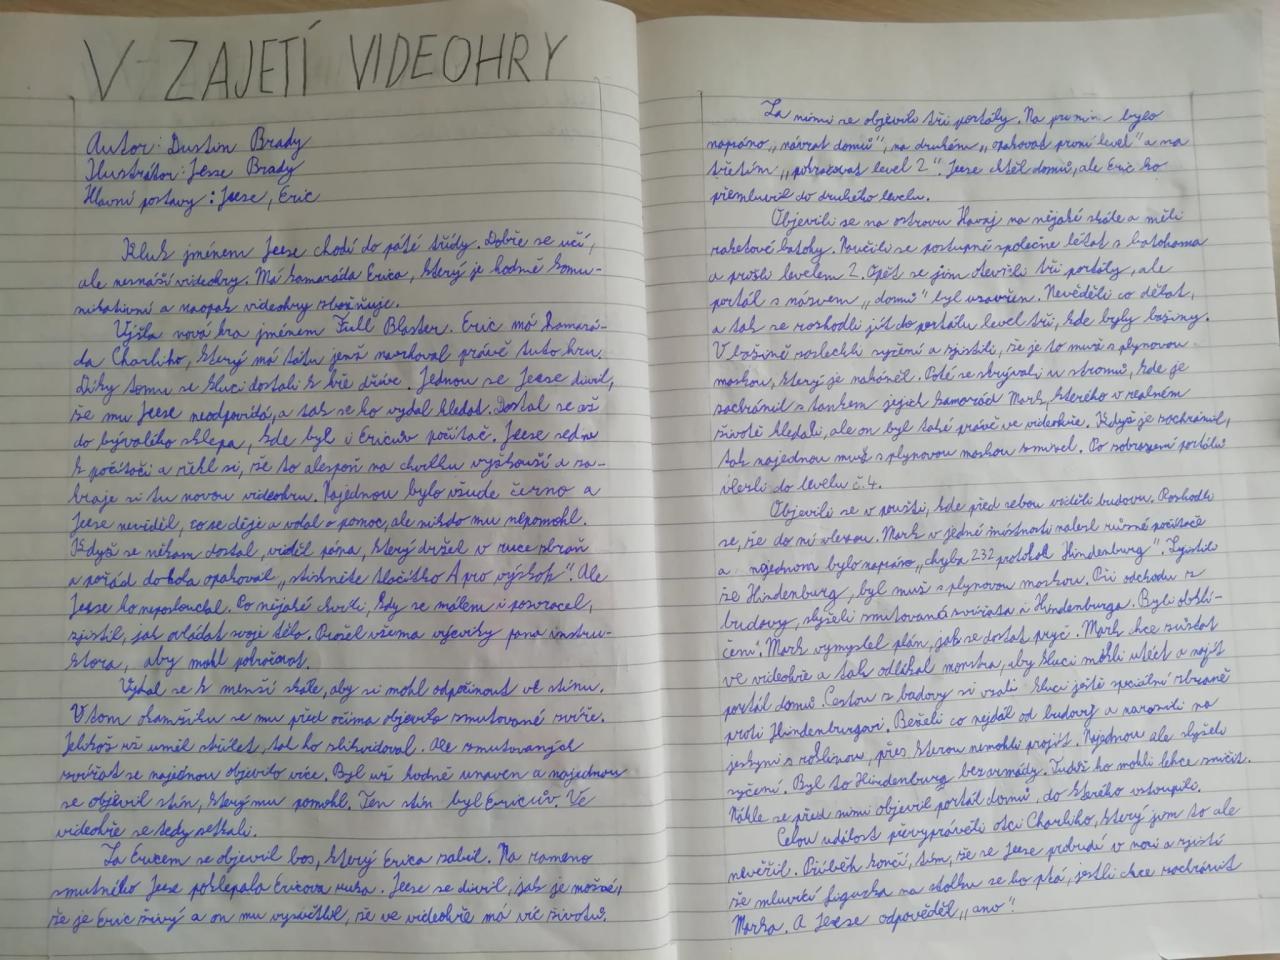 V ZAJETÍ VIDEOHRY
Autor: Dustin Brady
Ilustrátor: Jesse Brady
Hlavní postavy: Jesse, Eric
Kluk jménem Jesse chodí do páté třídy. Dobře se učí,
ale nesnáší videohry. Má kamaráda Erica, který je hodně komu-
nikativní a naopak videohry zbožňuje.
Vyšla nová hra jménem Full Blaster. Eric má kamará-
da Charliho, který má tátu jenž navrhoval právě tuto hru.
Díky tomu se kluci dostali k hře dříve. Jednou se Jesse divil,
že mu Jesse neodpovídá, a tak se ho vydal hledat. Dostal se až
do bývalého sklepa, kde byl i Ericův počítač. Jesse sedne
k počítači a řekl si, že to alespoň na chvilku vyzkouší a za-
hraje si tu novou videohru. Najednou bylo všude černo a
Jesse nevěděl, co se děje a volal o pomoc, ale nikdo mu nepomohl.
Když se někam dostal, viděl pána, který držel v ruce zbraň
a pořád dokola opakoval „stiskněte tlačítko A pro výskok". Ale
Jesse ho neposlouchal. Po nějaké chvíli, kdy se málem i pozvracel,
zjistil, jak ovládat svoje tělo. Prošel všema výcviky pana instru-
ktora, aby mohl pokračovat.
Vydal se k menší skále, aby si mohl odpočinout ve stínu.
V tom okamžiku se mu před očima objevilo zmutované zvíře.
Jelikož už uměl střílet, tak ho zlikvidoval. Ale zmutovaných
zvířat se najednou objevilo více. Byl už hodně unaven a najednou
se objevil stín, který mu pomohl. Ten stín byl Ericův. Ve
videohře se tedy setkali.
Za Ericem se objevil bos, který Erica zabil. Na rameno
smutného Jesse poklepala Ericova ruka. Jesse se divil, jak je možné,
že je Eric živý a on mu vysvětlil, že ve videohře má víc životů.
Za nimi se objevilo tři portály. Na prvním bylo
napsáno „návrat domů", na druhém „opakovat první level" a na
třetím „pokračovat level 2". Jesse chtěl domů, ale Eric ho
přemluvil do druhého levelu.
Objevili se na ostrovu Havaj na nějaké skále a měli
raketové batohy. Naučili se postupně společne létat s batohama
a prošli levelem 2. Opět se jim otevřeli tři portály, ale
portál s názvem „domů" byl uzavřen. Nevěděli co dělat,
a tak se rozhodli jít do portálu level tři, kde byly bažiny.
V bažině zaslechli syčení a zjistili, že je to muž s plynovou
maskou, který je naháněl. Poté se skrývali u stromů, kde je
zachránil s tankem jejich kamarád Mark, kterého v reálném
životě hledali, ale on byl také právě ve videohře. Když je zachránil,
tak najednou muž s plynovou maskou zmizel. Po zobrazení portálu
vlezli do levelu č.4.
Objevili se v poušti, kde před sebou viděli budovu. Rozhodli
se, že do ní vlezou. Mark v jedné místnosti nalezl různé počítače
a najednou bylo napsáno „chyba 232 protokol Hindenburg". Zjistili
že Hindenburg, byl muž s plynovou maskou. Při odchodu z
budovy, slyšeli zmutovaná zvířata i Hindenburga. Byli obklí-
čení. Mark vymyslel plán, jak se dostat pryč. Mark chce zůstat
ve videohře a tak odlákal monstra, aby kluci mohli utéct a najít
portál domů. Cestou z budovy si vzali kluci ještě speciální zbraně
proti Hindenburgovi. Běželi co nejdál od budovy a narazili na
jeskyni s rostlinou, přes kterou nemohli projít. Najednou ale slyšeli
syčení. Byl to Hindenburg bez armády. Tudíž ho mohli lehce zničit.
Náhle se před nimi objevil portál domů, do kterého vstoupili.
Celou událost převyprávěli otci Charliho, který jim to ale
nevěřil. Příběh končí, tím, že se Jesse probudí v noci a zjistí
že mluvící figurka na stolku se ho ptá, jestli chce zachránit
Marka. A Jesse odpověděl „ano".